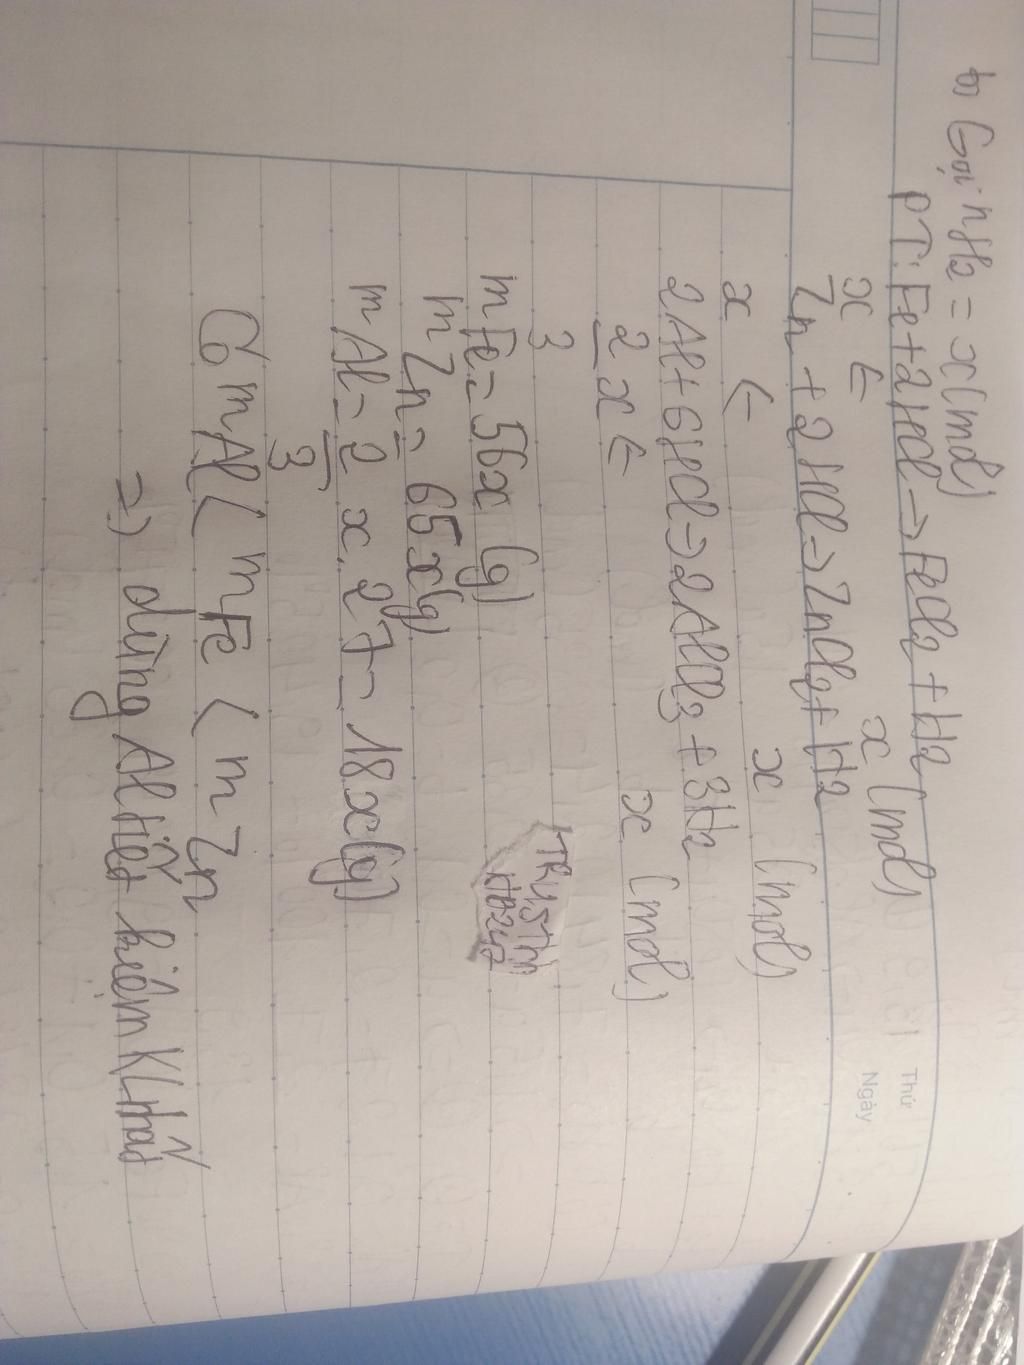 Thứ
Ngày
b) Gọi nH2 = x(mol)
PT: Fe + 2HCl → FeCl2 + H2
x ← x (mol)
Zn + 2HCl → ZnCl2 + H2
x ← x (mol)
2Al + 6HCl → 2AlCl3 + 3H2
2/3 x ← x (mol)
mFe = 56x (g)
mZn = 65x(g)
mAl = 2/3 x.27 = 18x(g)
Có mAl < mFe < mZn
=> dùng Al tiết kiệm KL nhất